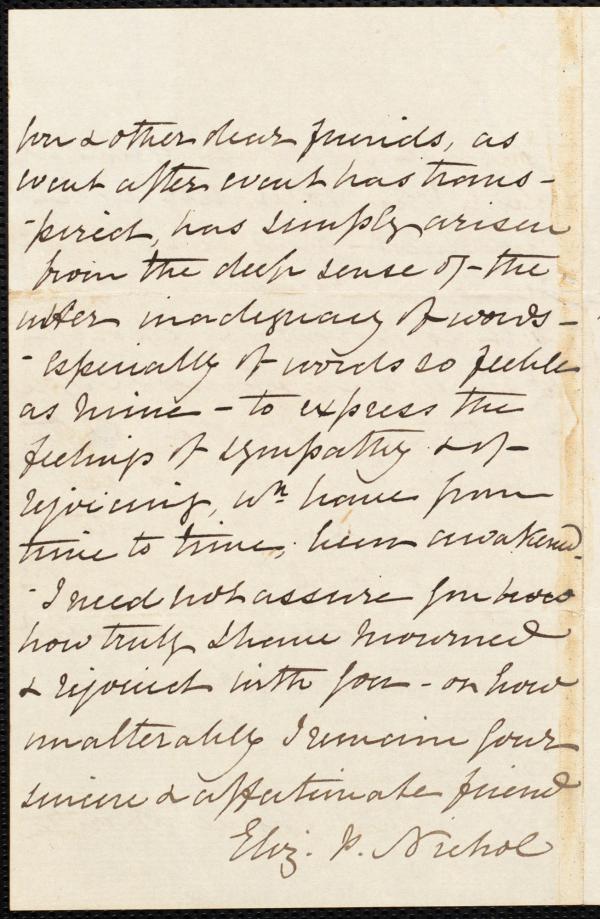 you & other dear friends, as
event after event has trans-
-pired, has simply arisen
from the deep sense of the
utter inadequacy of words -
- especially of words so feeble
as mine - to express the
feelings of sympathy & of
rejoicing, wh. have from
time to time, been awakened.
- I need not assure you
how truly I have mourned
& rejoiced with you - or how
unalterably I remain your
sincere & affectionate friend
Eliz. P. Nichol